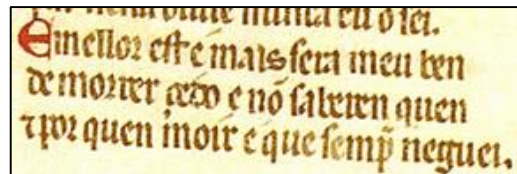 nunca eu o sei.
E mellor est e mais sera meu ben
de morrer çedo e nõ saberen quen
⁊ por quen moir e que semp̄ neguei.